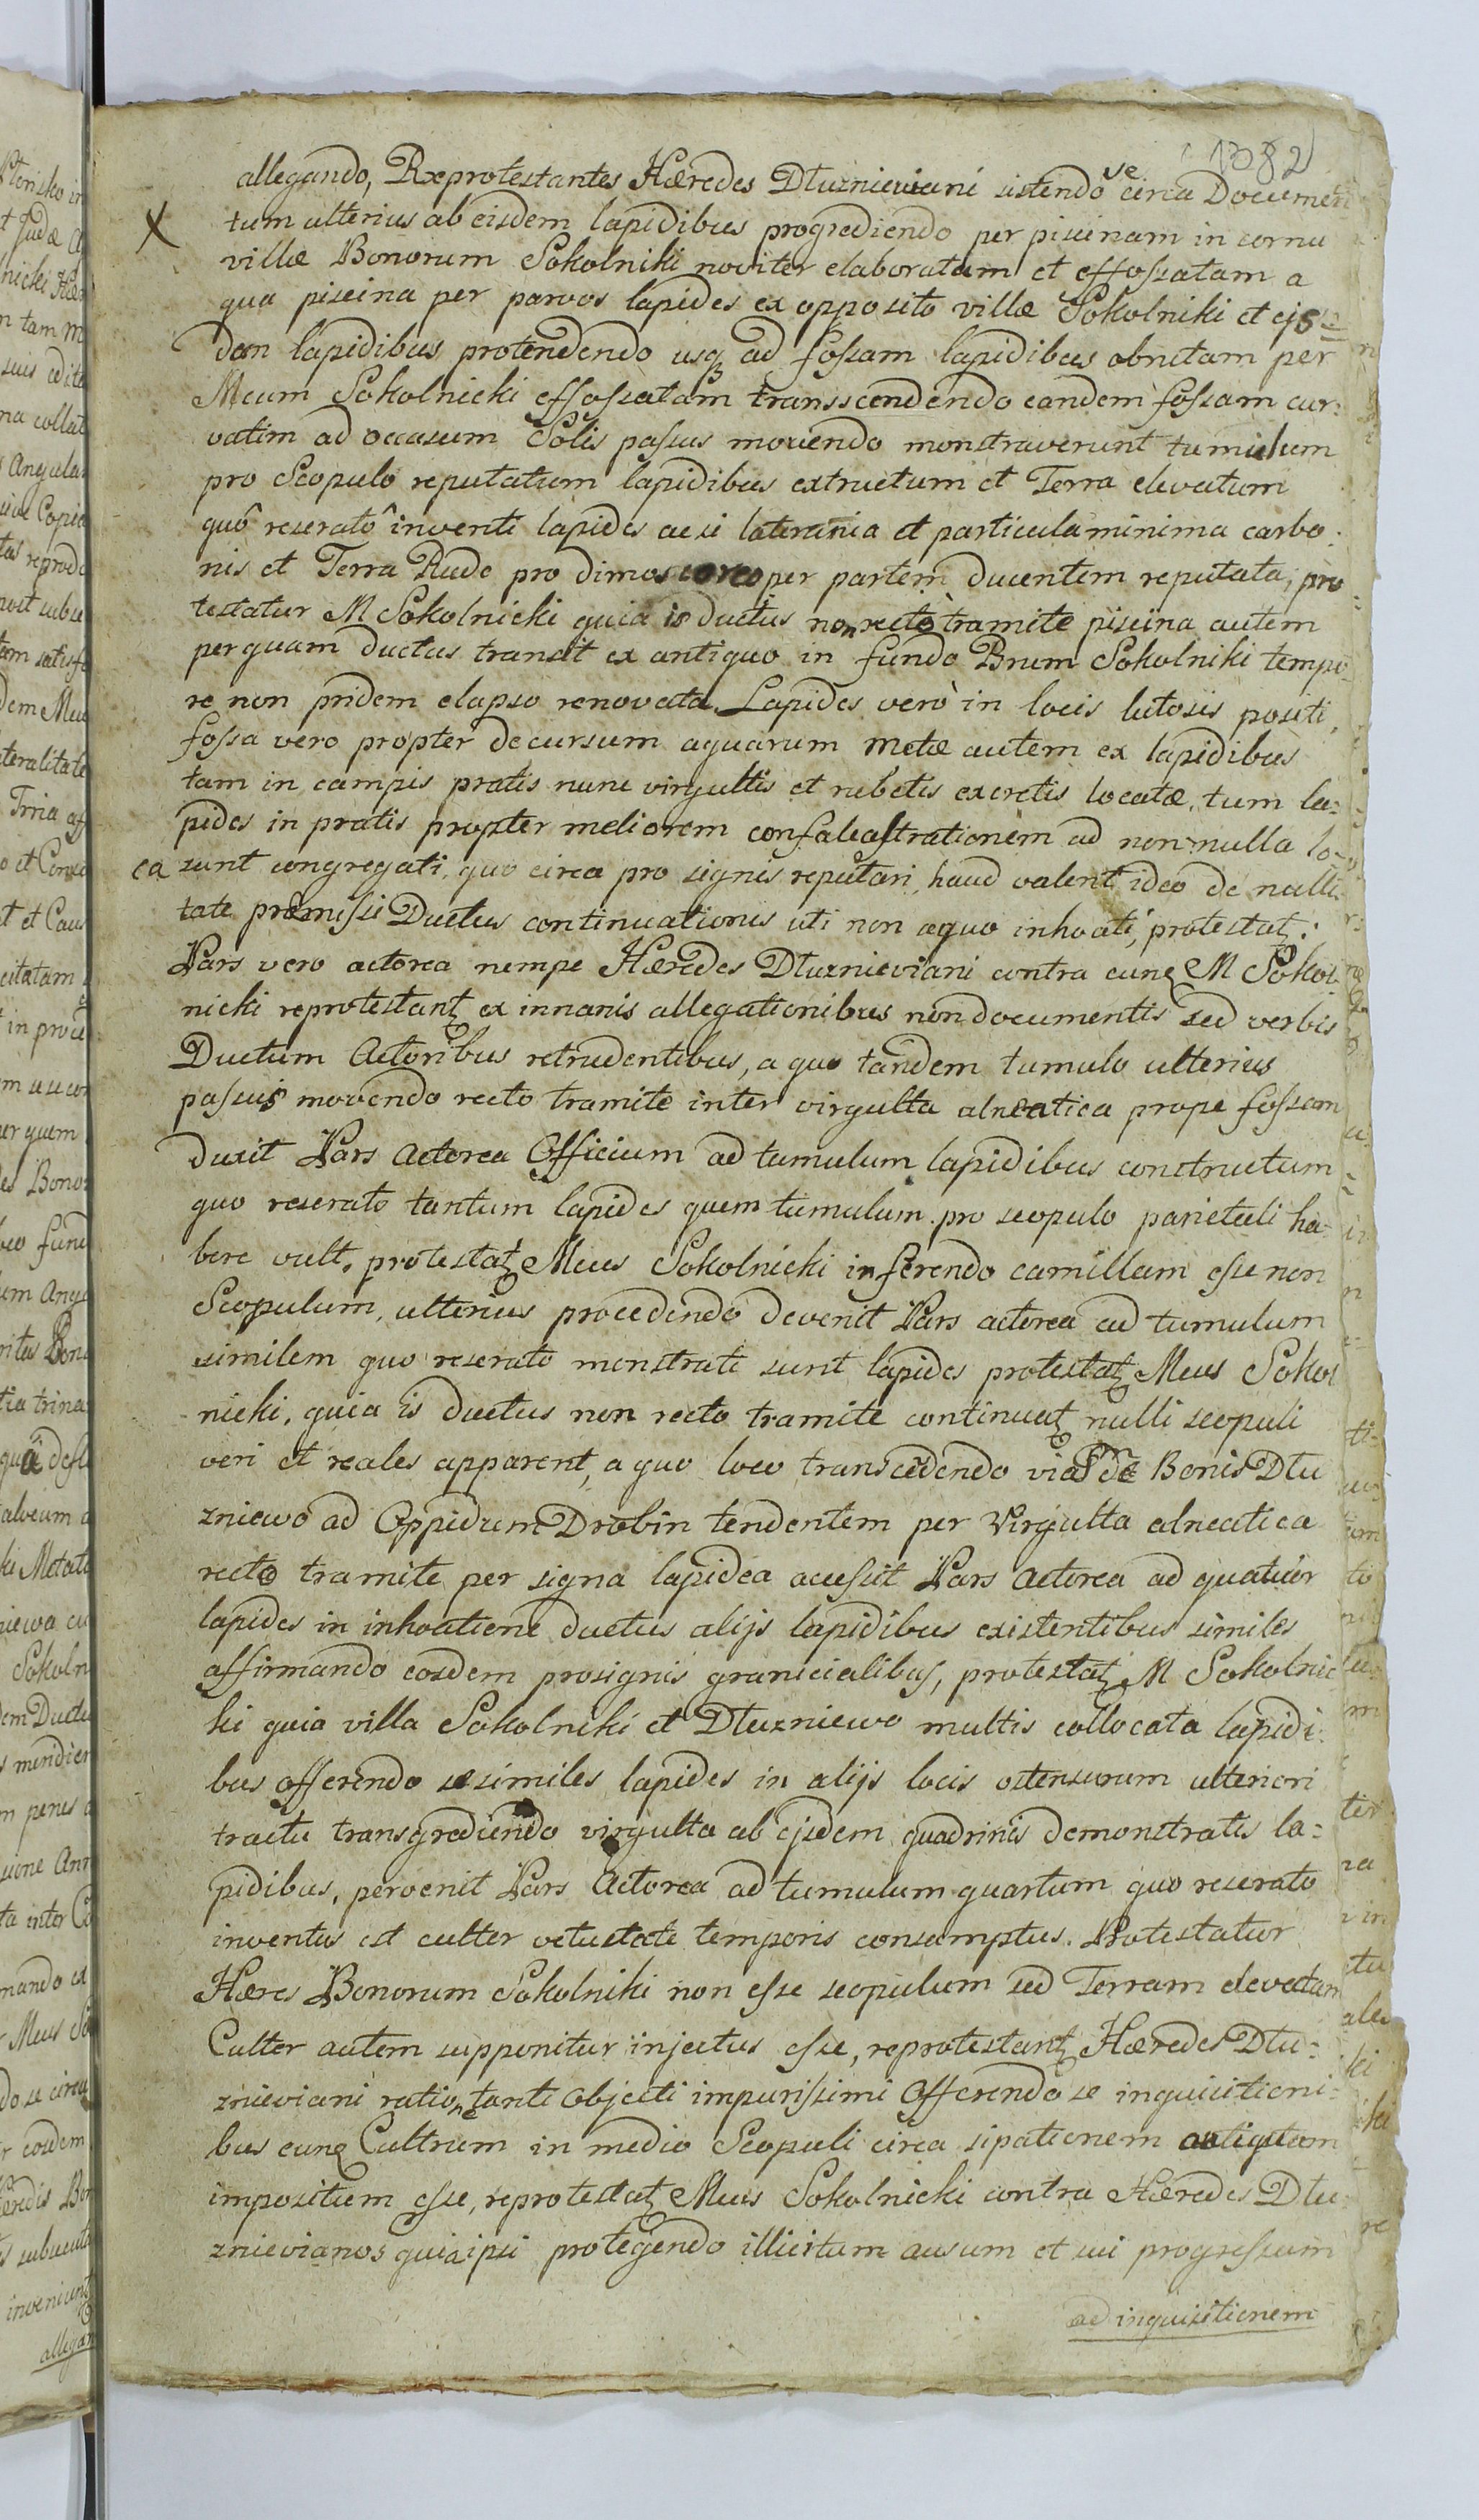 1382
allegando, Reprotestantes Hæredes Dłuznieviani sistendo se circa Documen
tum ulterius ab eisdem lapidibus progrediendo per piscinam in cornu
villæ Bonorum Sokolniki noviter elaboratam et effossatam a
qua piscina per parvos lapides ex opposito villæ Sokolniki et ejs=
dem lapidibus protendendo usq ad fossam lapidibus obrutam per
Meum Sokolnicki effossatam transscendendo eandem fossam cur:
vatim ad occasum Solis passus movendo monstraverunt tumulum
pro Scopulo reputatum lapidibus extructum et Terra elevatum
quô reseratô inventi lapides acsi lateritia et particula minima carbo:
nis et Terra Rudo pro dimos coreo per partem ducentem reputata, pro=
testatur M Sokolnicki quia is ductus non recto tramite piscina autem
per quam ductus transit ex antiquo in fundo Bnum Sokolniki tempo
re non pridem elapso renovata. Lapides verò in locis lutosis positi,
fossa vero propter decursum aquarum metæ autem ex lapidibus
tam in campis pratis nunc virgultis et rubetis excretis locatæ, tum la=
pides in pratis propter meliorem confalcastrationem ad non nulla lo=
ca sunt congregati, quo circa pro signis reputari, haud valent ideo de nulli
tate præmissi Ductus continuationis uti non aquo inhoati, protestat:
Pars vero actorea nempe Hæredes Dłuznieviani contra eunq M Sokol
nicki reprotestant ex innanis allegationibus non documentis sed verbis
Ductum Actoribus retrudentibus, a quo tandem tumulo ulterius
passus movendo recto tramite inter virgulta alneatica prope fossam
duxit Pars Actorea Officium ad tumulum lapidibus constructum
quo reserato tantum lapides quem tumulum pro scopulo parietali ha
bere vult, protestat Meus Sokolnicki inferendo camillam esse non
Scopulum, ulterius procedendo devenit Pars actorea ad tumulum
similem quo reserato monstrati sunt lapides protestat Meus Sokol
nicki, quia is ductus non recto tramite continuat nulli scopuli
veri et reales apparent, a quo loco transcedendo viam de Bonis Dłu
zniewo ad Oppidum Drobin tendentem per Virgulta alneatica
recto tramite per signa lapidea accessit Pars Actorea ad quatuor
lapides in inhoatione ductus alijs lapidibus existentibus similes
affirmando eosdem prosignis granicialibus, protestat M Sokolnic
ki quia villa Sokolniki et Dłuzniewo multis collocata lapidi:
bus offerendo se similes lapides in alijs locis ostensurum ulteriori
tractu transgrediendo virgulta ab ejsdem quadrinis demonstratis la=
pidibus, pervenit Pars Actorea ad tumulum quartum quo reserato
inventus est culter vetustate temporis consumptus. Protestatur
Hæres Bonorum Sokolniki non esse scopulum sed Terram elevatam
Culter autem supponitur injectus esse, reprotestant Hæredes Dłu=
znieviani ratione tanti Objecti impurissimi Offerendo se inquisitioni=
bus eunq Cultrum in medio Scopuli circa sipationem antiquam
impositum esse, reprotestat Meus Sokolnicki contra Hæredes Dłu
znievianos quia ipsi protegendo illicitum ausum et sui progressum
ad inquisitionem